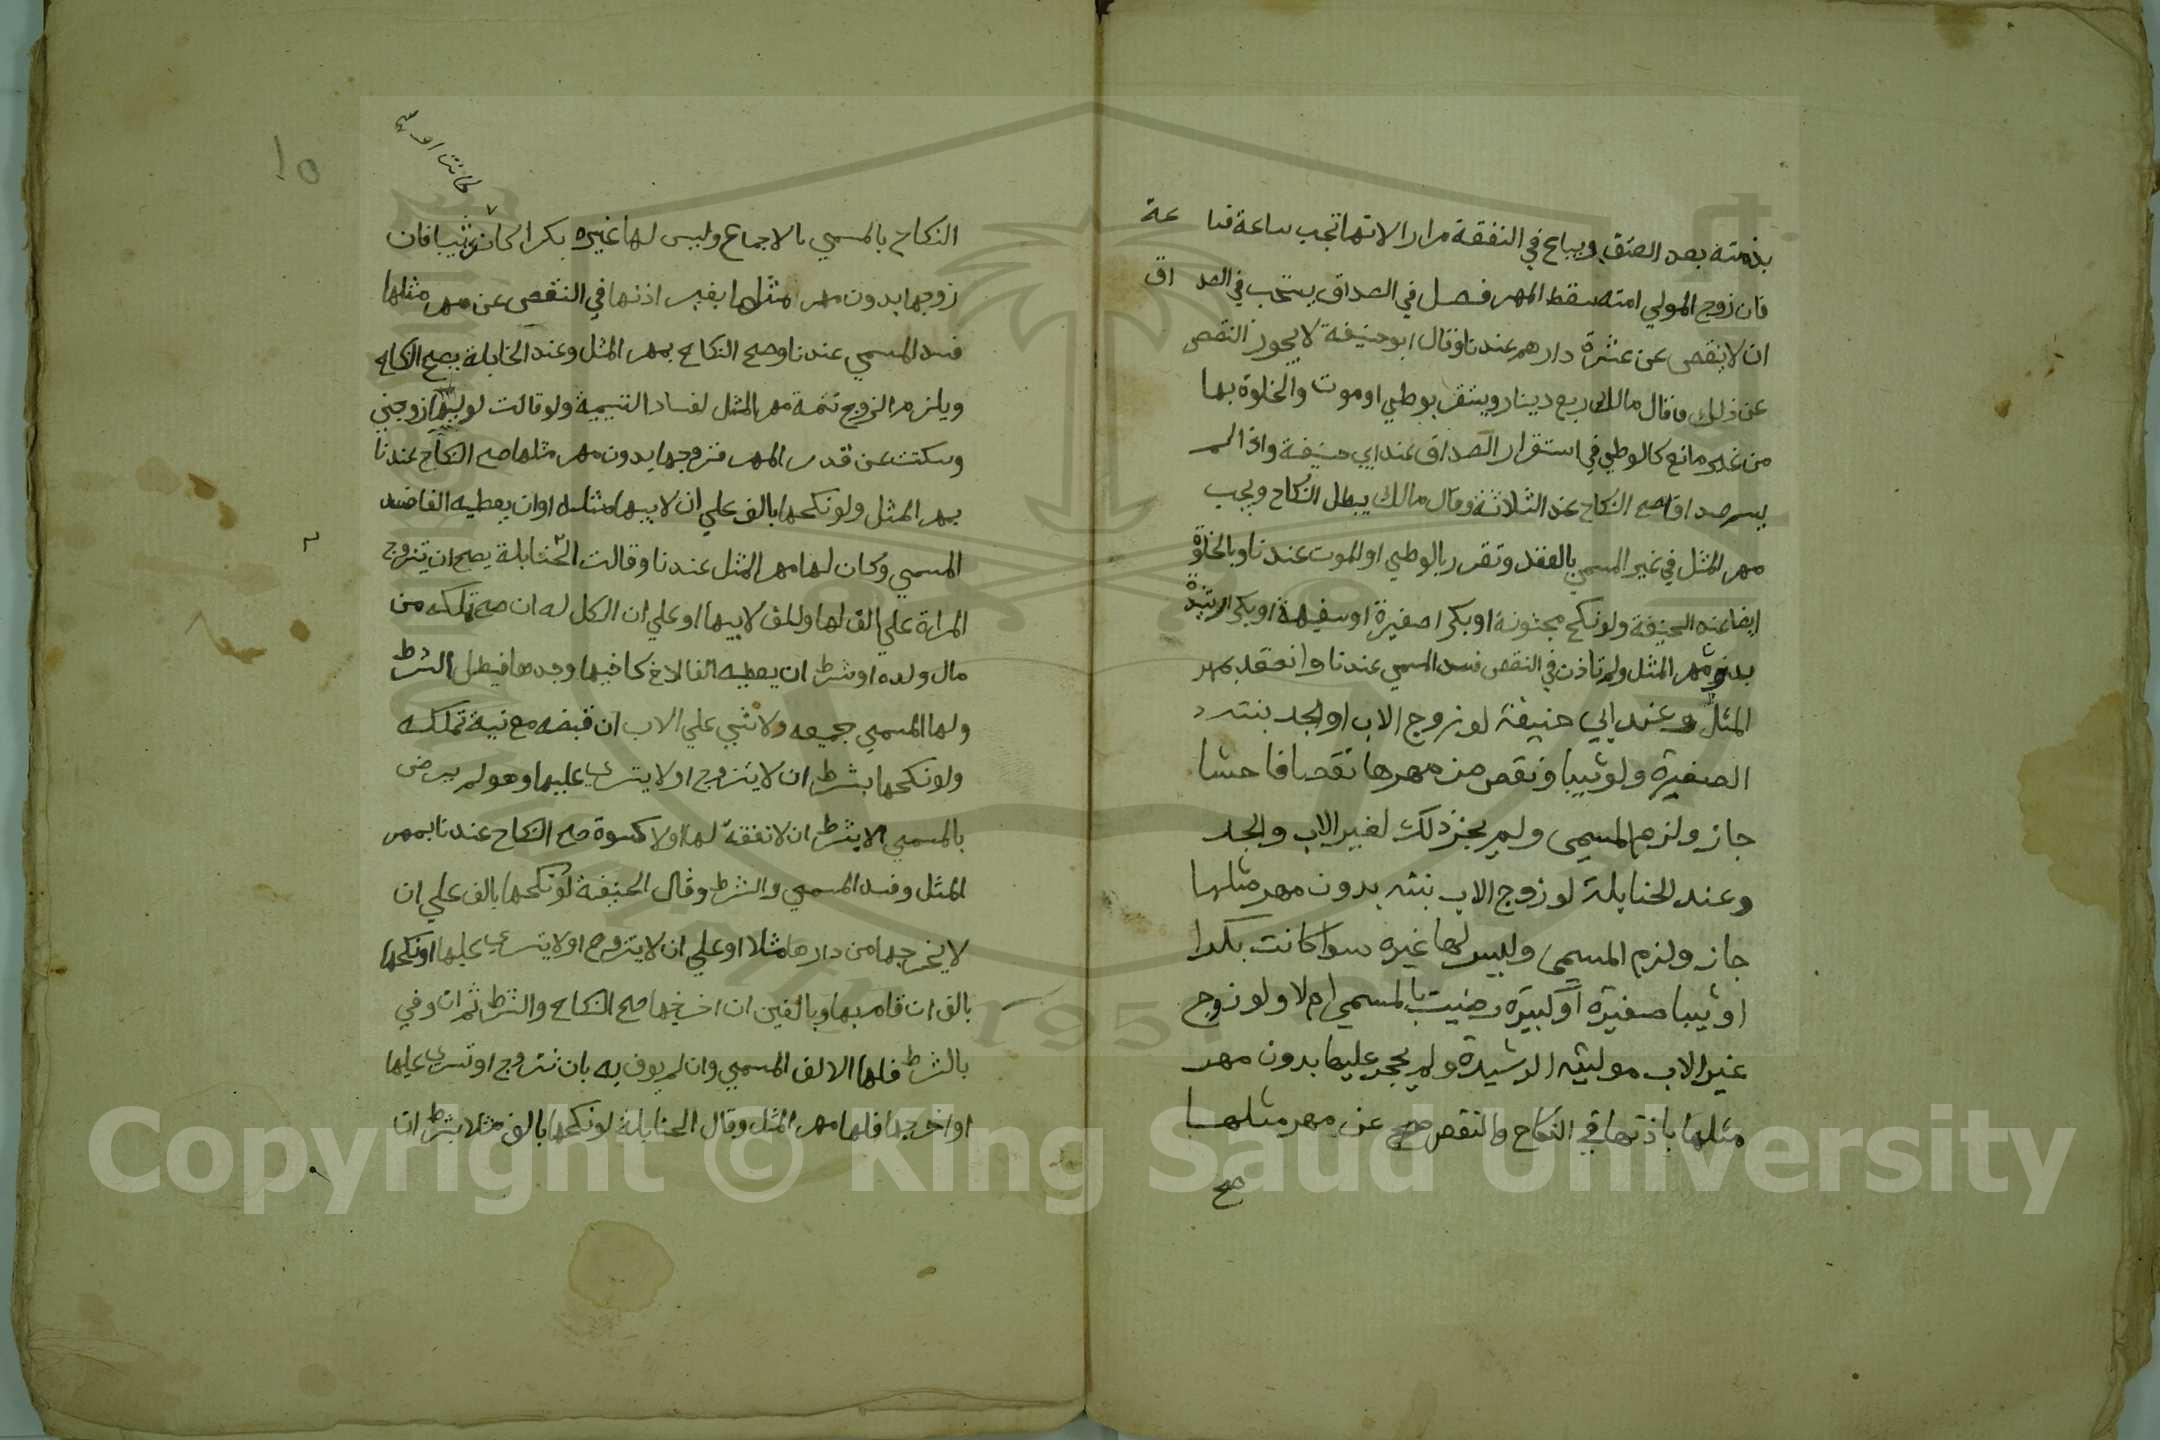 بذمته بعد العتق ويباع في النفقة مرارا لانها تجب ساعة فسا عة
فان زوج المولي امته سقط المهر فصل في الصداق يستحب في الصد اق
ان لا ينقص عن عشرة دارهم عندنا وقال ابو حنيفة لا يجوز النقص
عن ذلك وقال مالك ربع دينار ويستقر بوطي او موت والخلوة بها
من غير مانع كالوطي في استقرار الصداق عند ابي حنيفة واذا لم
يسم صداقا صح النكاح عند الثلاثة وقال مالك يبطل النكاح ويجب
مهر المثل في غير المسمي بالعقد وتقرر بالوطي او الموت عندنا وبالخلوة
ايضا عند الحنيفة ولو نكح مجنونة او بكرا صغيرة او سفيهة او بكرا رشيدة
بدون مهر المثل ولم تاذن في النقص فسد المسمي عندنا وانعقد بمهر
المثل وعند ابي حنيفة لو زوج الاب او الجد بنته
الصغيرة ولو ثيبا ونقص من مهرها نقصا فاحشا
جاز ولزم المسمى ولم يجز ذلك لغير الاب والجد
وعند الحنابلة لو زوج الاب بنته بدون مهر مثلها
جاز ولزم المسمى وليس لها غيره سوا كانت بكرا
او ثيبا صغيرة او كبيرة رضيت بالمسمي ام لا ولو زوج
غير الاب موليته الرشيدة ولم يحجر عليها بدون مهر
مثلها باذنها في النكاح والنقص صح عن مهر مثلها
صح
١٥
كانت او
النكاح بالمسمي بالاجماع وليس لها غيره بكرا كانت او ثيبا فان
زوجها بدون مهر مثلها بغير اذنها في النقص عن مهر مثلها
فسد المسمي عندنا وصح النكاح بمهر المثل وعند الحنابلة يصح النكاح
ويلزم الزوج تتمة مهر المثل لفساد التسمية ولو قالت لوليها زوجني
وسكتت عن قدر المهر فزوجها بدون مهر مثلها صح النكاح عندنا
بمهر المثل ولو نكحها بالف علي ان لابيها مثله او ان يعطيه الفا فسد
المسمي وكان لها مهر المثل عندنا وقالت الحنابلة يصح ان يتزوج
المراة علي الف لها والف لابيها او علي ان الكل له ان صح تملكه من
مال ولده او شرط ان يعطيه الفا لاخ كما فيها وجدها فيبطل الشرط
ولها المسمي جميعه ولا شي علي الاب ان قبضه مع نية تملكه
ولو نكحها بشرط ان لا يتزوج او لا يتسرى عليها وهو لم يرض
بالمسمي الا بشرط ان لا نفقة لها ولا كسوة صح النكاح عندنا بمهر
المثل وفسد المسمي والشرط وقال الحنيفة لو نكحها بالف علي ان
لا يخرجها من دارها مثلا او علي ان لا يتزوج او لا يتسرى عليها او نكحها
بالف ان قام بها وبالفين ان اخرجها صح النكاح والشرط ثم ان وفي
بالشرط فلها الالف المسمي وان لم يوف به بان تزوج او تسرى عليها
او اخرجها فلها مهر المثل وقال الحنابلة لو نكحها بالف مثلا بشرط ان
Copyright © King Saud University
1957